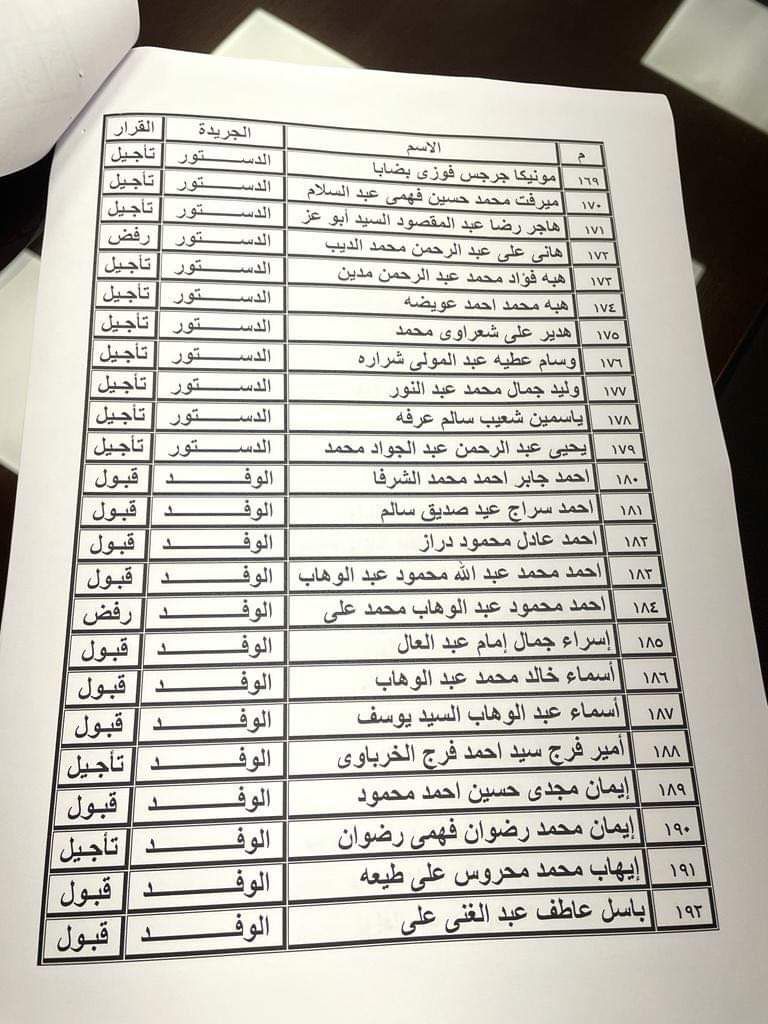 م الاسم الجريدة القرار
١٦٩ مونيكا جرجس فوزى بضابا الدستور تأجيل
١٧٠ ميرفت محمد حسين فهمى عبد السلام الدستور تأجيل
١٧١ هاجر رضا عبد المقصود السيد أبو عز الدستور تأجيل
١٧٢ هانى على عبد الرحمن محمد الديب الدستور رفض
١٧٣ هبه فؤاد محمد عبد الرحمن مدين الدستور تأجيل
١٧٤ هبه محمد احمد عويضه الدستور تأجيل
١٧٥ هدير على شعراوى محمد الدستور تأجيل
١٧٦ وسام عطيه عبد المولى شراره الدستور تأجيل
١٧٧ وليد جمال محمد عبد النور الدستور تأجيل
١٧٨ ياسمين شعيب سالم عرفه الدستور تأجيل
١٧٩ يحيى عبد الرحمن عبد الجواد محمد الدستور تأجيل
١٨٠ احمد جابر احمد محمد الشرفا الوفد قبول
١٨١ احمد سراج عيد صديق سالم الوفد قبول
١٨٢ احمد عادل محمود دراز الوفد قبول
١٨٣ احمد محمد عبد الله محمود عبد الوهاب الوفد قبول
١٨٤ احمد محمود عبد الوهاب محمد على الوفد رفض
١٨٥ إسراء جمال إمام عبد العال الوفد قبول
١٨٦ أسماء خالد محمد عبد الوهاب الوفد قبول
١٨٧ أسماء عبد الوهاب السيد يوسف الوفد قبول
١٨٨ أمير فرج سيد احمد فرج الخرباوى الوفد تأجيل
١٨٩ إيمان مجدى حسين احمد محمود الوفد قبول
١٩٠ إيمان محمد رضوان فهمى رضوان الوفد تأجيل
١٩١ إيهاب محمد محروس على طيعه الوفد قبول
١٩٢ باسل عاطف عبد الغنى على الوفد قبول